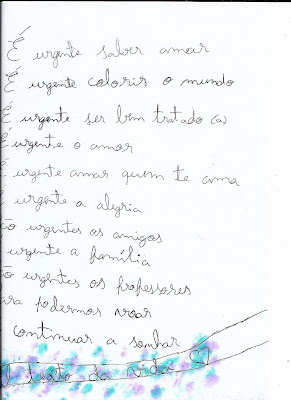 É urgente saber amar
É urgente colorir o mundo
É urgente ser bem tratado (a)
É urgente o amor
É urgente amar quem te ama
É urgente a alegria
ão urgentes os amigos
urgente a família
ão urgentes os professores
ara podermos voar
continuar a sonhar
da vida